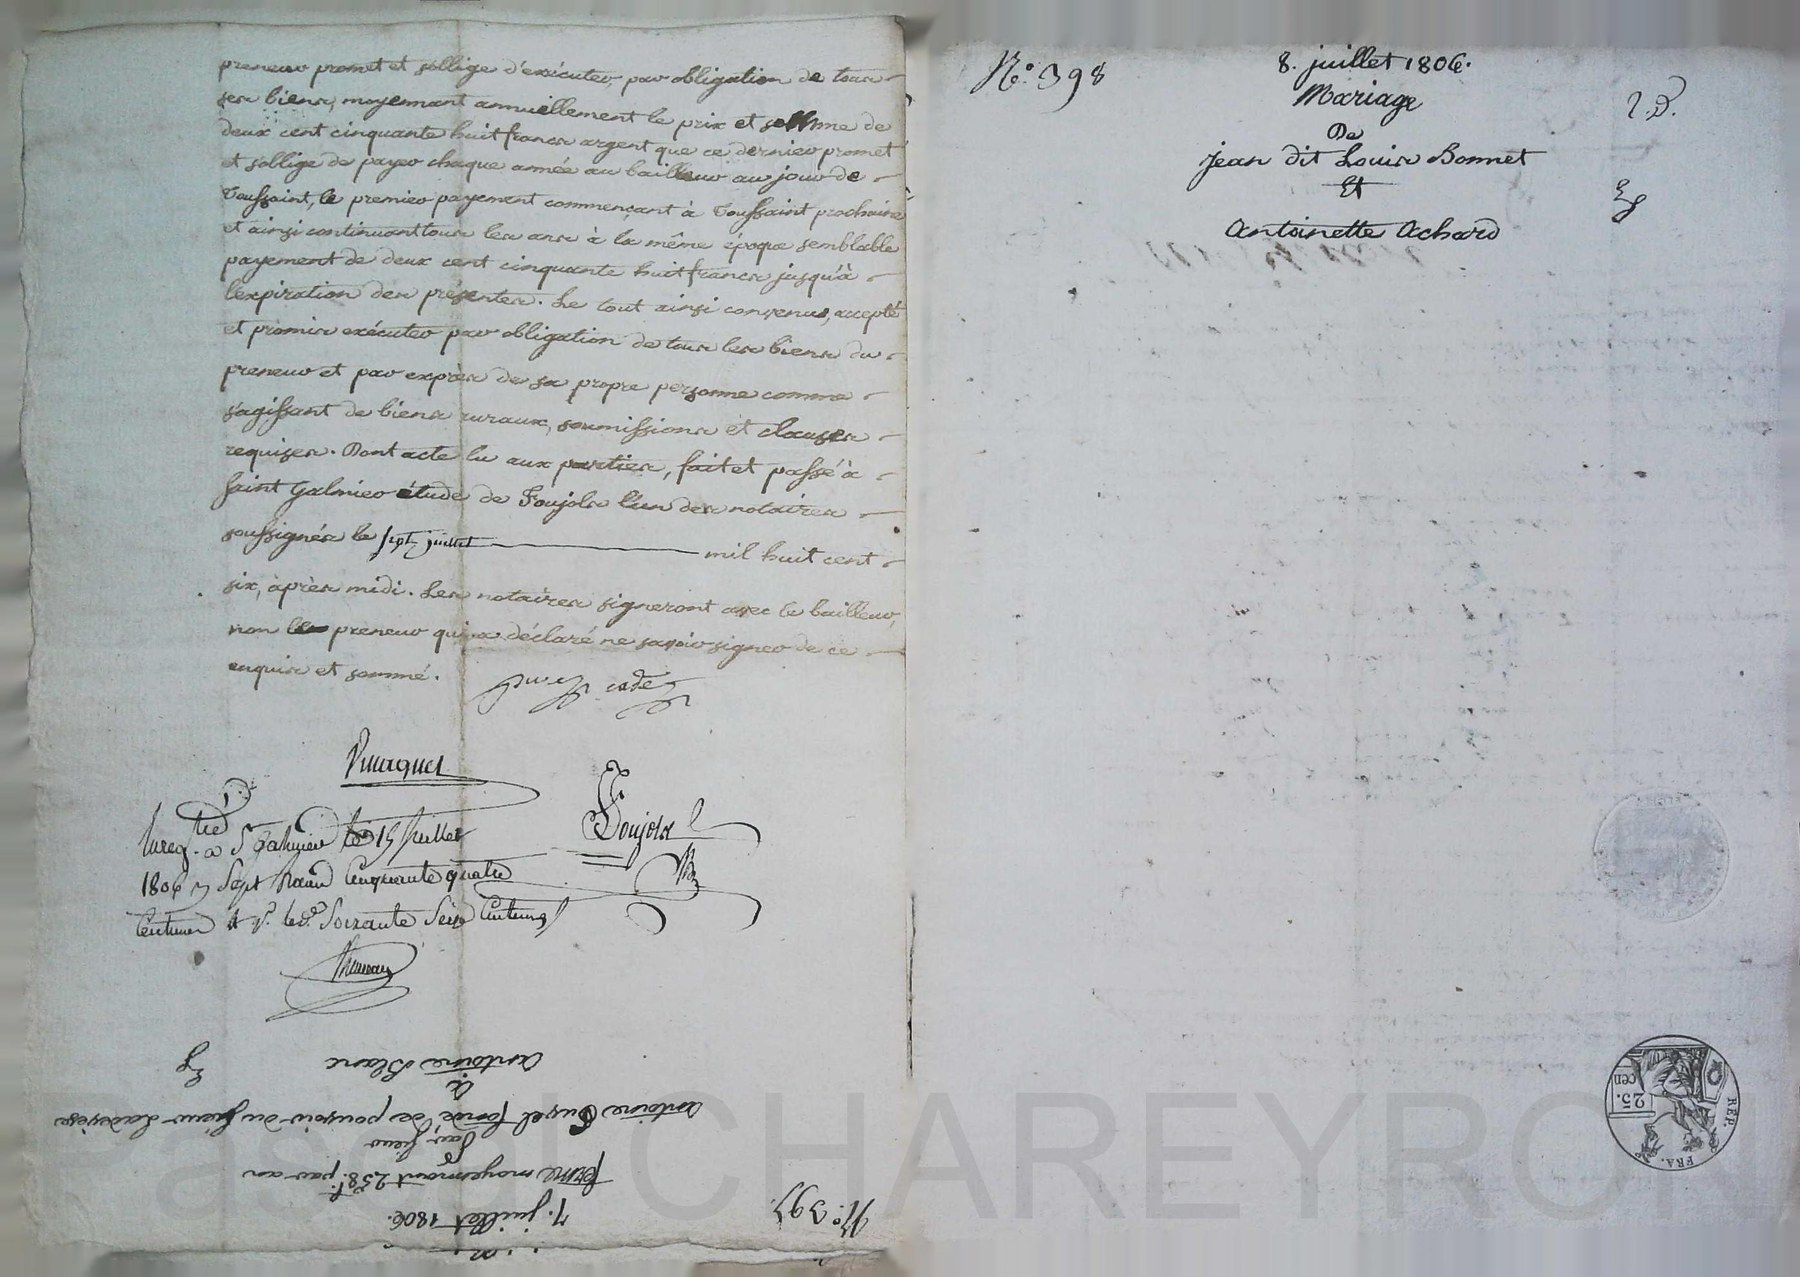 preneur promet et s'oblige d'exécuter, par obligation de tous
ses biens, moyennant annuellement le prix et somme de
deux cent cinquante huit francs argent que ce dernier promet
et s'oblige de payer chaque année au bailleur au jour de
Toussaint, le premier payement commençant à Toussaint prochaine
et ainsi continuant tous les ans à la même époque semblable
payement de deux cent cinquante huit francs jusqu'à
l'expiration des présentes. Le tout ainsi convenu, accepté
et promis exécuter par obligation de tous les biens du
preneur et par exprès de sa propre personne comme
s'agissant de biens ruraux, soumissions et clauses
requises. Dont acte lu aux parties, fait et passé à
Saint Galmier étude de Foujols l'un des notaires
soussignés le sept juillet mil huit cent
six, après midi. Les notaires signeront avec le bailleur,
non le preneur qui a déclaré ne savoir signer de ce
enquis et sommé.
Foujols
Enreg.tré à St Galmier le 15 Juillet
1806 Sept cinquante quatre
Centimes Soixante Seize Centimes
N.o 397
7. juillet 1806.
ferme moyennant 258f. par an
Par sieur
Antoine fondé de pouvoir du sieur
à
Antoine Blanc
Eg
N.o 398
8. juillet 1806.
Mariage
De
Jean dit Louis Bonnet
Et
Antoinette Achard
Eg
REP. FRA.
25.
cen
Pascal CHAREYRON